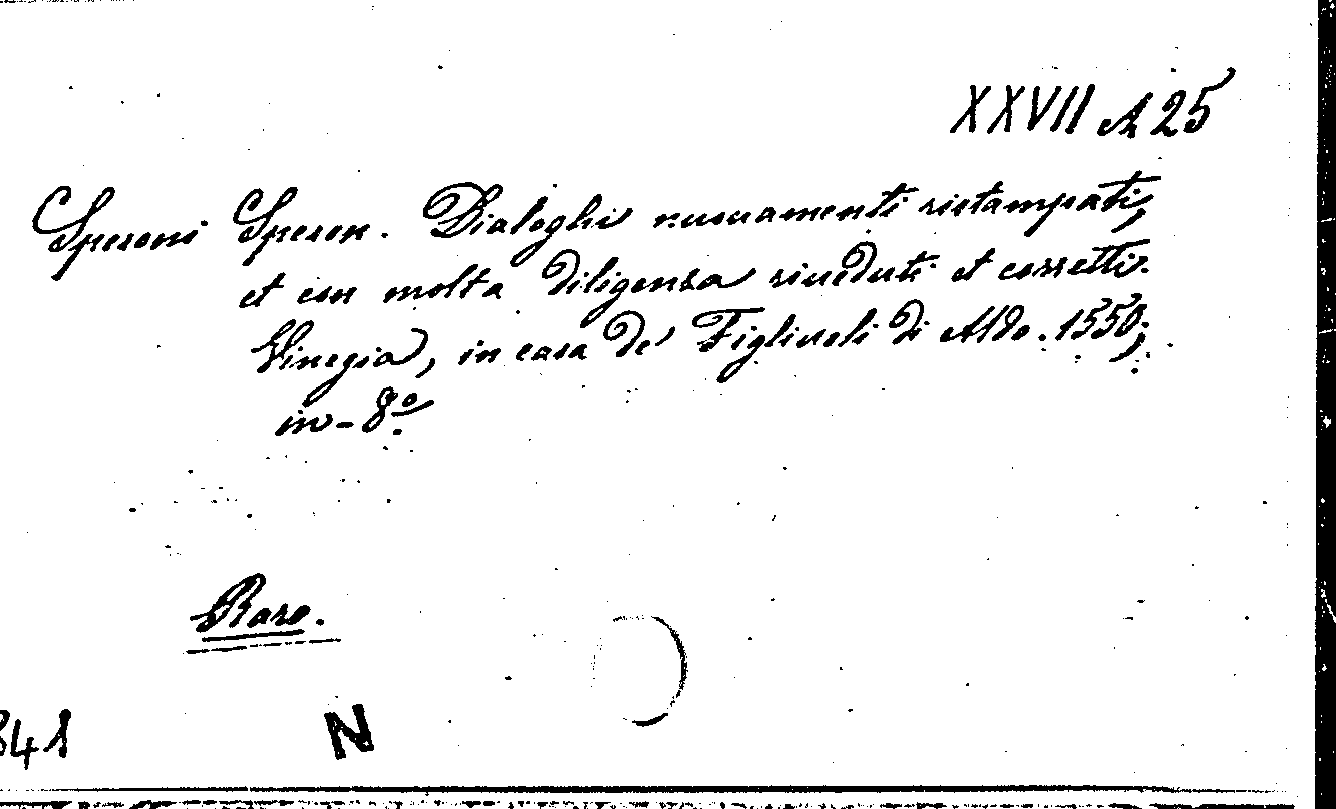 XXVII A 25
Speroni Speron. Dialoghi nuovamenti ristampati,
et con molta diligenza riveduti et corretti.
Vinegia, in casa de' Figliuoli di Aldo. 1550;
in-8º.
Raro.
N